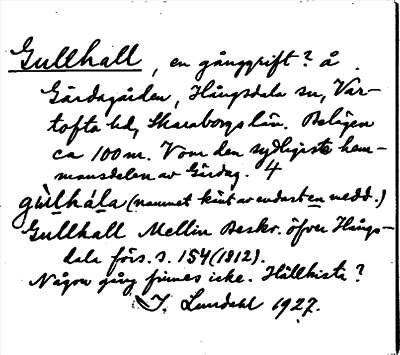 Gullhall, en gånggrift? å
Gärdagården, Hångsdala sn, Var-
tofta hd, Skaraborgs län. Belägen
ca 100 m. V om den sydligaste hem-
mansdelen av Gärdag. 4
gùlhála (namnet känt av endast en medd.)
Gullhall Mellin Beskr. öfver Hångs-
dala förs. s. 154 (1812).
Någon gång finnes icke. Hällkista?
J. Lundahl 1927.